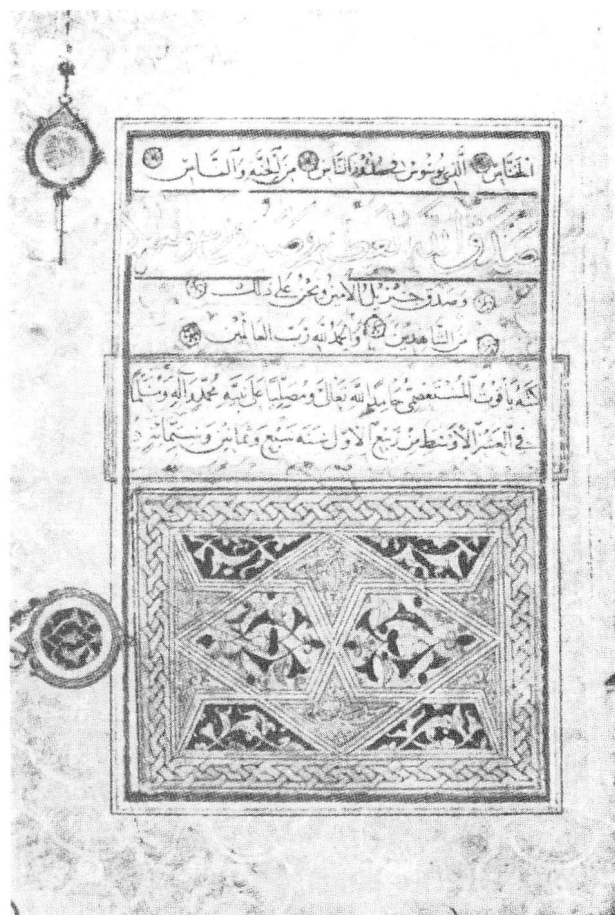 الخناس الذي يوسوس في صدور الناس من الجنة والناس
صدق الله العظيم وصدق رسوله
وصدق جبريل الامين ونحن على ذلك
من الشاهدين والحمد لله رب العالمين
كتبه ياقوت المستعصمي حامدا لله تعالى ومصليا على نبيه محمد وآله ومسلما
في العشر الاوسط من ربيع الاول سنه سبع وثمانين وستمائة